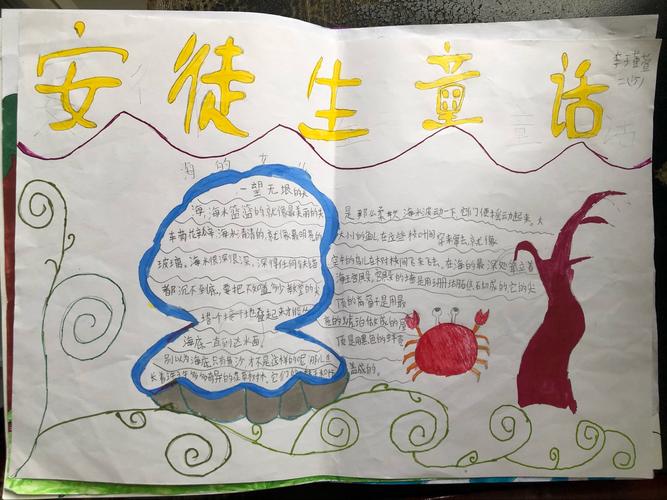 安徒生童话
李瑾萱
二(5)
海的女儿
一望无垠的大
海,海水蓝蓝的就像最美丽的矢
车菊花瓣,海水清清的,就像最明亮的
玻璃。海水很深很深,深得任何铁锚
都沉不到底。要把不知道多少教堂的尖
塔一个接一个地叠起来才能从
海底一直到达水面。
别以为海底只有黄沙,才不是这样的呢,那儿生
长着许许多多奇异的花草树木,它们的枝干和叶
是那么柔软,海水波动一下,它们便摇动起来。大
大小小的鱼儿在这些枝叶间穿来穿去,就像
空中的鸟儿在树枝间飞来飞去。在海的最深处矗立着
海王的宫殿。宫殿的墙是用珊瑚脂化石砌成的,它的尖
顶的高窗子是用最
亮的琥珀做成的,屋
顶是用黑色的蚌壳
盖成的。